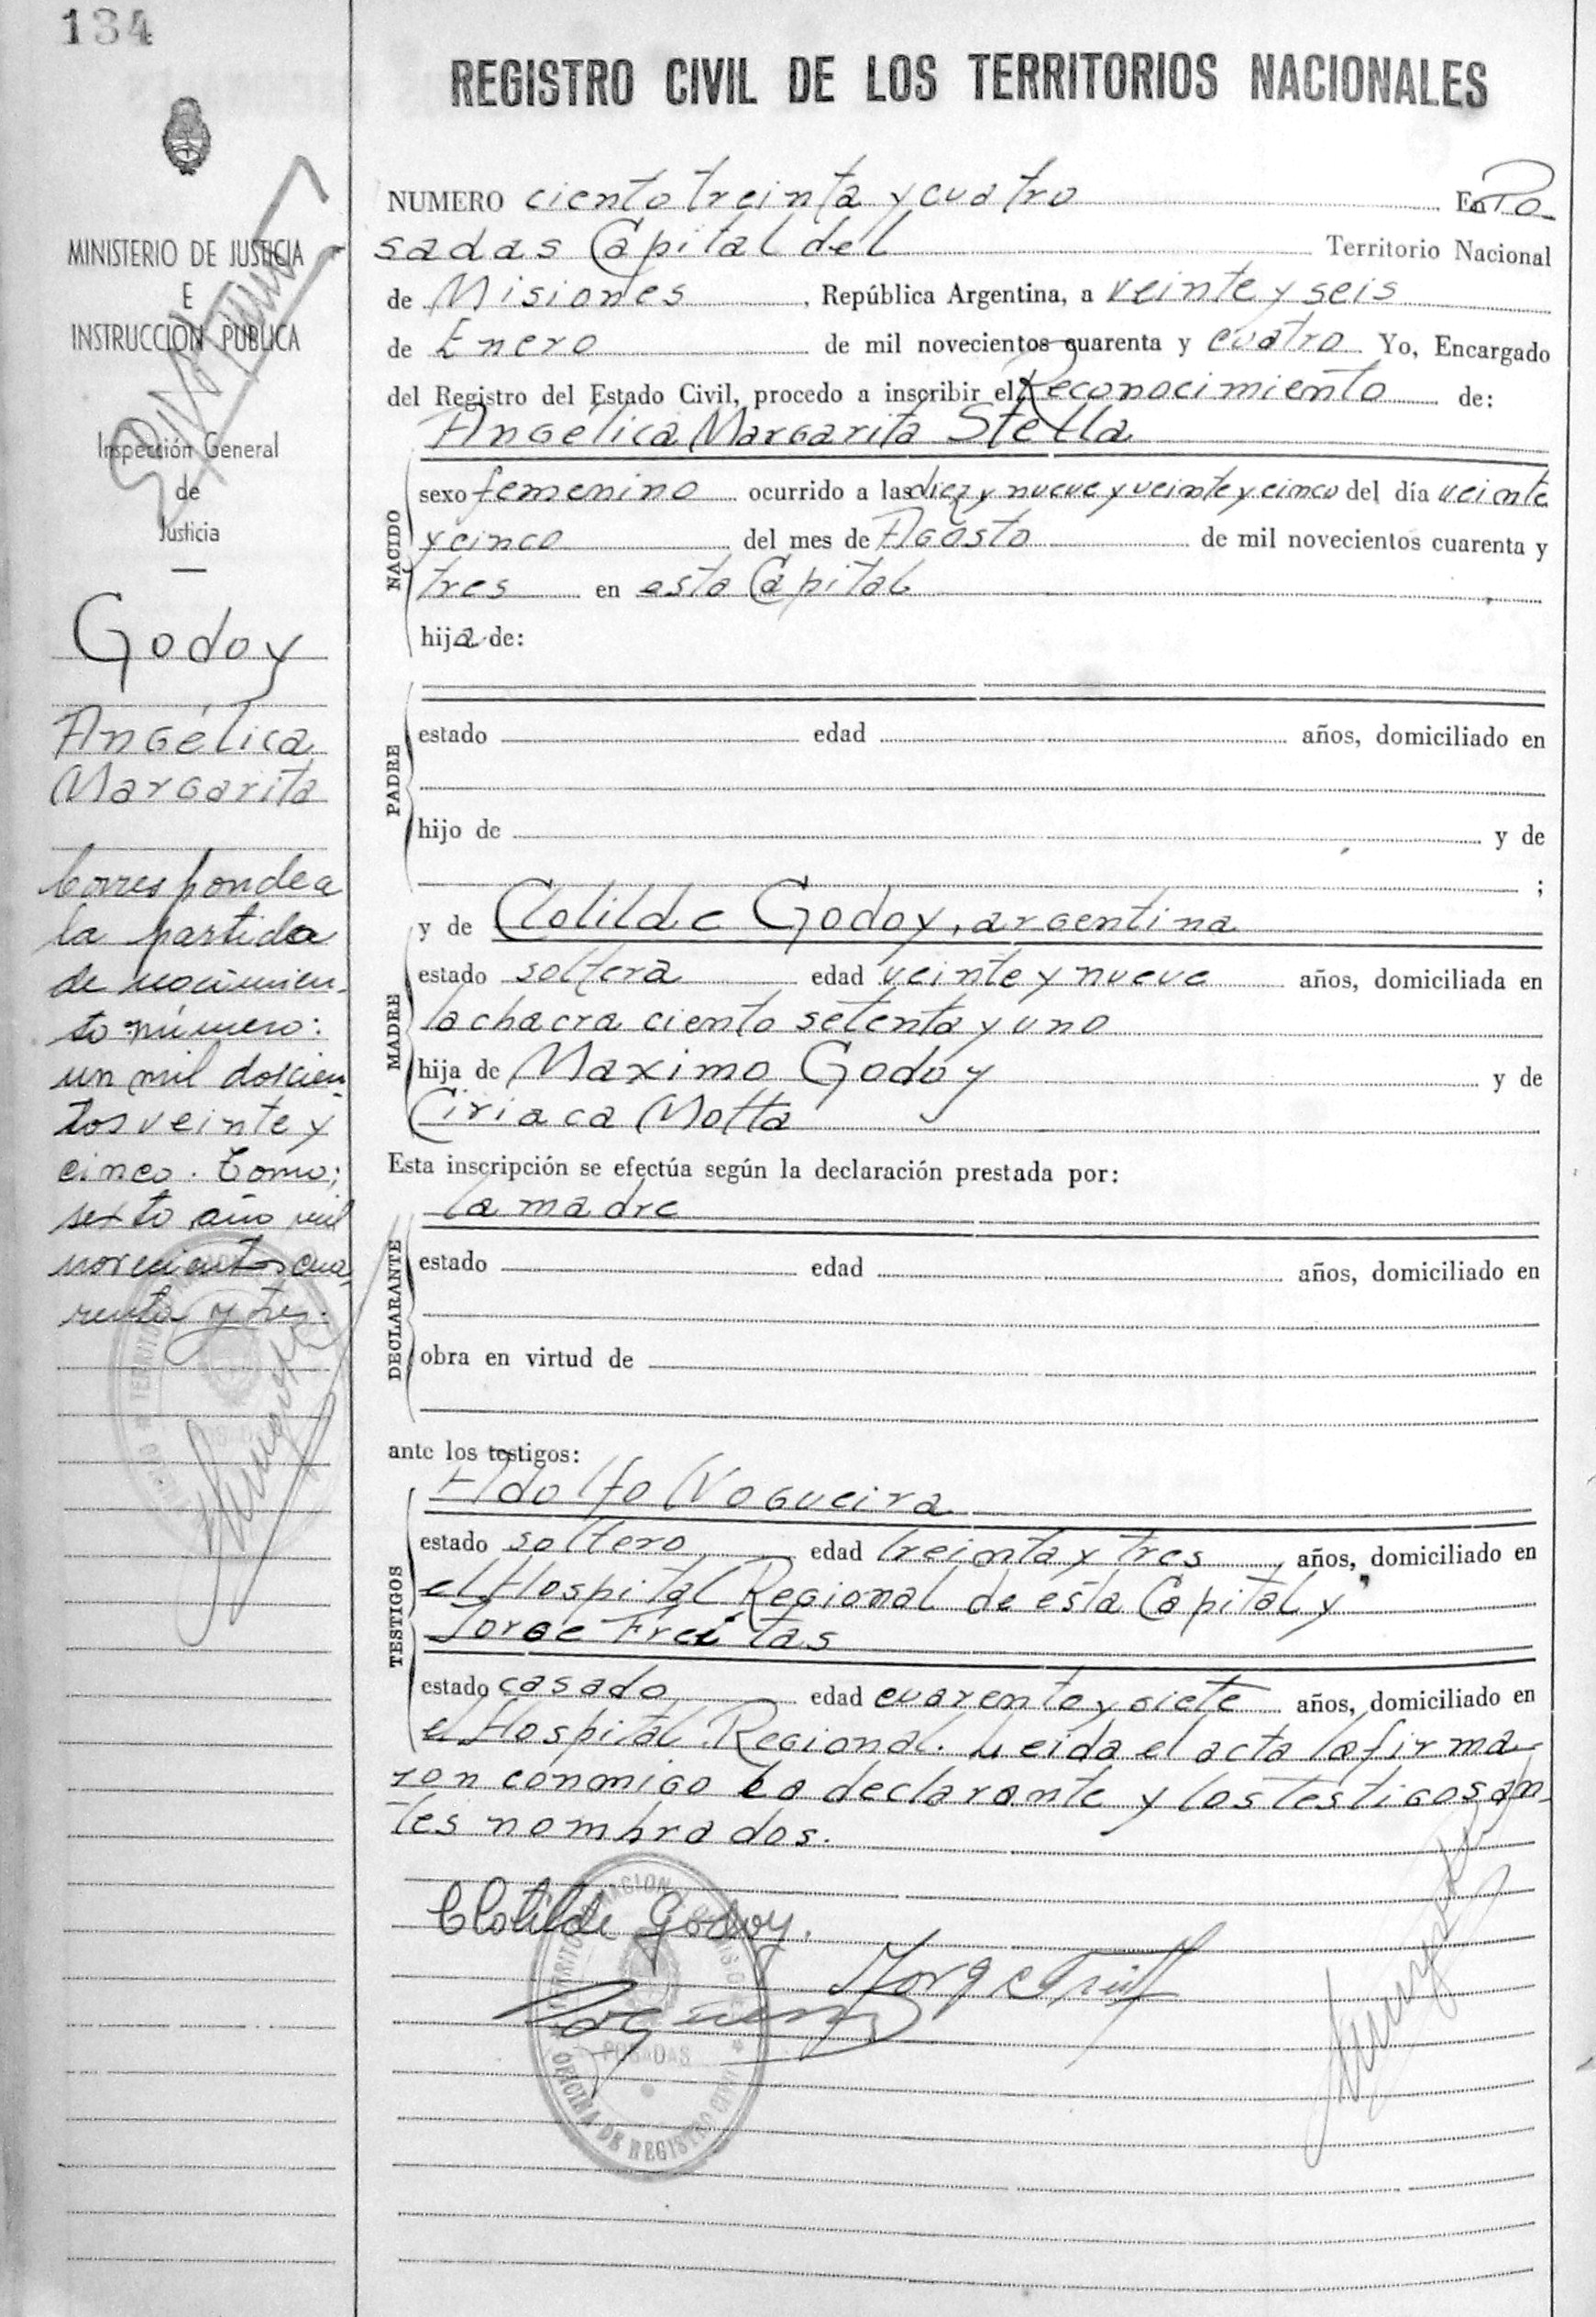 134
REGISTRO CIVIL DE LOS TERRITORIOS NACIONALES
MINISTERIO DE JUSTICIA
E
INSTRUCCIÓN PUBLICA
Inspección General
de
Justicia
Godoy
Angélica
Margarita
Corresponde a
la partida
de nacimien-
to número:
un mil doscien-
tos veinte y
cinco. Tomo:
sexto año mil
novecientos cua-
renta y tres.
NUMERO ciento treinta y cuatro En Po-
sadas Capital del Territorio Nacional
de Misiones, República Argentina, a veinte y seis
de Enero de mil novecientos cuarenta y cuatro Yo, Encargado
del Registro del Estado Civil, procedo a inscribir el Reconocimiento de:
Angélica Margarita Stella
NACIDO
sexo femenino ocurrido a las diez y nueve y veinte y cinco del día veinte
y cinco del mes de Agosto de mil novecientos cuarenta y
tres en esta Capital
hija de:
PADRE
estado edad años, domiciliado en
hijo de y de
;
y de Clotilde Godoy, argentina
MADRE
estado soltera edad veinte y nueve años, domiciliada en
la chacra ciento setenta y uno
hija de Maximo Godoy y de
Ciriaca Motta
Esta inscripción se efectúa según la declaración prestada por:
la madre
DECLARANTE
estado edad años, domiciliado en
obra en virtud de
ante los testigos:
Adolfo Nogueira
TESTIGOS
estado soltero edad treinta y tres años, domiciliado en
el Hospital Regional de esta Capital y
Jorge Freitas
estado casado edad cuarenta y siete años, domiciliado en
el Hospital Regional. Leida el acta la firma-
ron conmigo la declarante y los testigos an-
tes nombrados.
Clotilde Godoy.
Jorge
POSADAS
OFICINA DE REGISTRO CIVIL